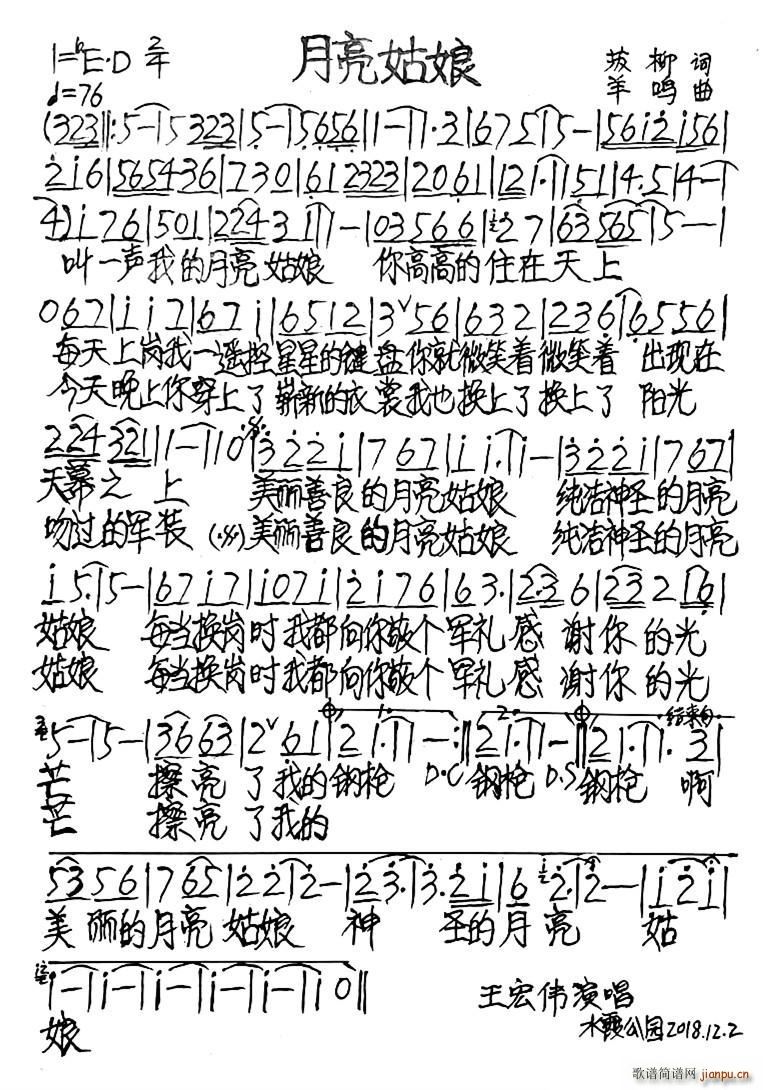 月亮姑娘
1=♭E·D 2/4
♩=76
拔柳 词
羊鸣 曲
(323‖:5-|5 323|5-|5656|1-|1·3|675|5-|56i2i56|
2i6|565436|730|612323|2061|121·|51|4·5|4-|
4)i76|501|22431|1-|035666|27|63565|5-|
叫一声我的月亮姑娘 你高高的住在天上
067|ii7|67i|6512|3ˇ56|632|236|6556|
每天上岗我一遥控星星的键盘你就微笑着微笑着 出现在
今天晚上你穿上了崭新的衣裳我也换上了换上了 阳光
224321|1-|10|322i|767|ii·|i-|322i|767|
天幕之上 美丽善良的月亮姑娘 纯洁神圣的月亮
吻过的军装 美丽善良的月亮姑娘 纯洁神圣的月亮
i5·|5-|67i7|i07i|2i76|63·|236|23216|
姑娘 每当换岗时我都向你敬个军礼感谢你的光
姑娘 每当换岗时我都向你敬个军礼感谢你的光
1. 2. 结束句
5-|5-|3663|2ˇ61|21·|1-:‖21·|1-‖21·|1·3|
芒 擦亮了我的钢枪 D.C 钢枪 D.S 钢枪 啊
芒 擦亮了我的
5356|765|22|2-|23·|3·2i|6 2·|2--|i2i|
美丽的月亮姑娘 神 圣的月亮 姑
i-|i-|i-|i-|i-|i0‖
娘
王宏伟演唱
水霞公园2018.12.2
歌谱简谱网
jianpu.cn